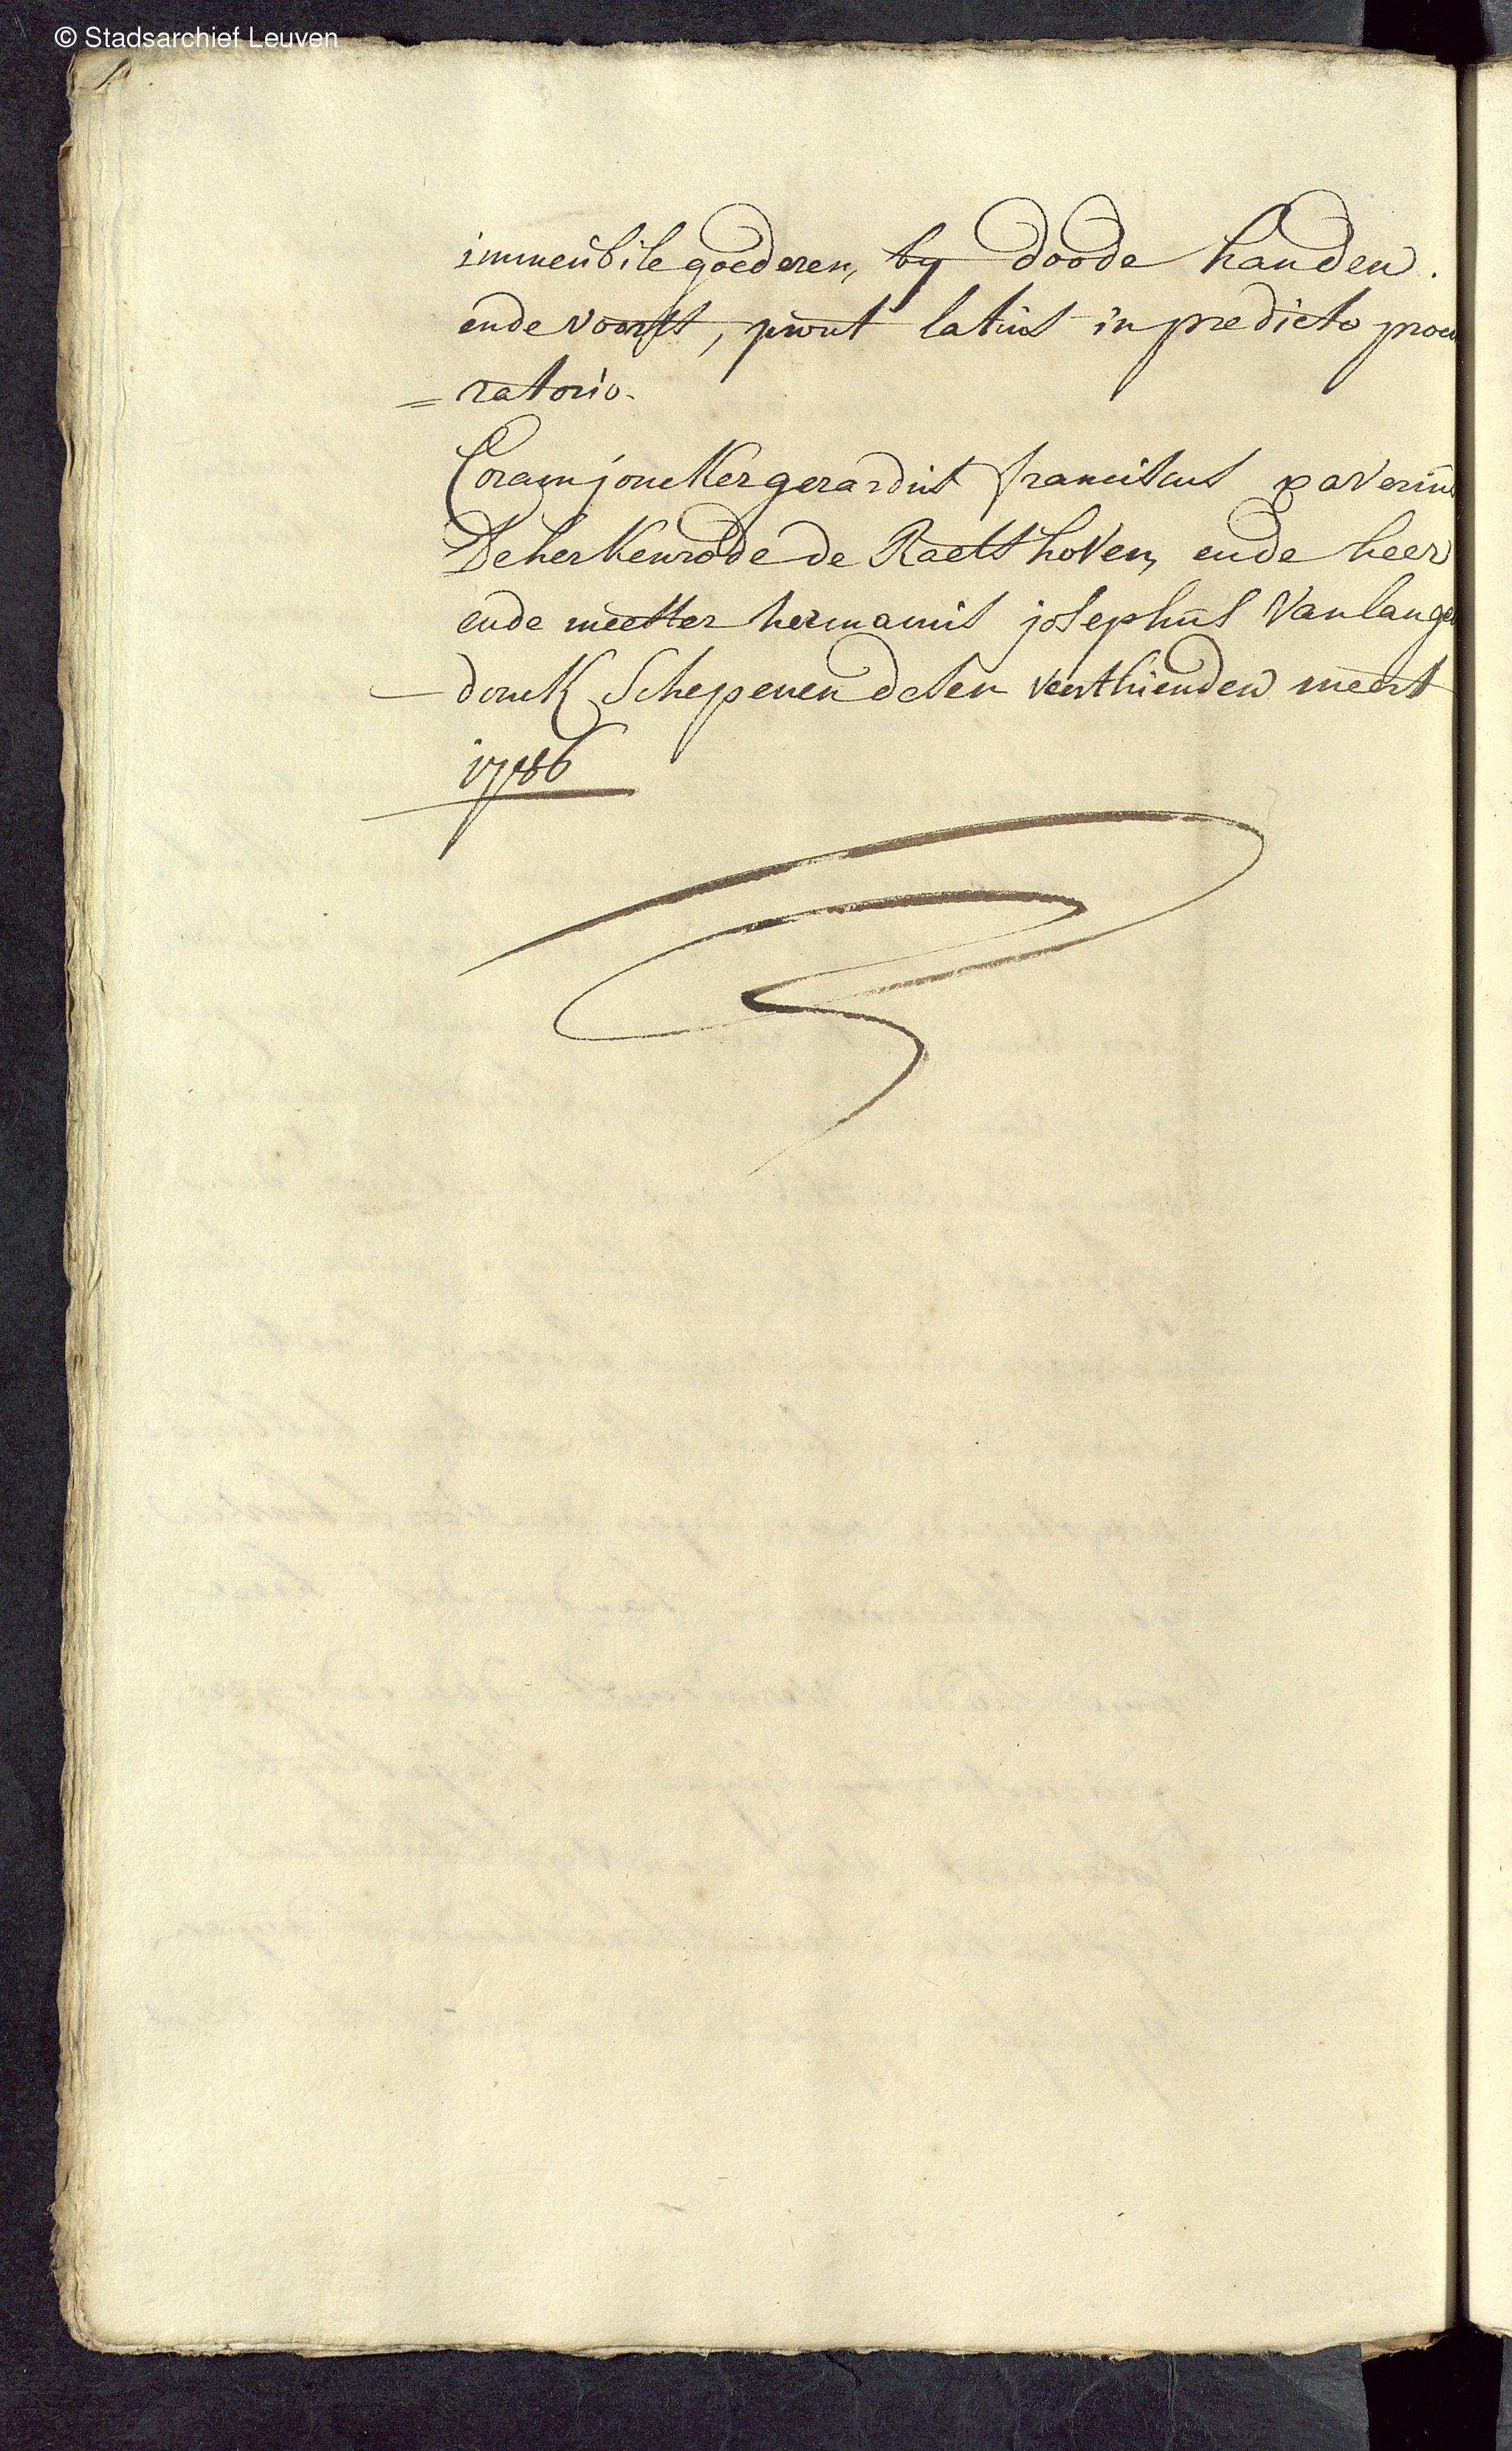 © Stadsarchief Leuven
immeubile goederen, by doode handen.
ende voorts, prout latius in predicto procu
= ratorio.
Coram joncker gerardus franciscus xaverius
De herkenrode de Raetshoven, ende heer
ende meester hermanus josephus Van lange
- donck Schepenen desen veerthienden meert
1786